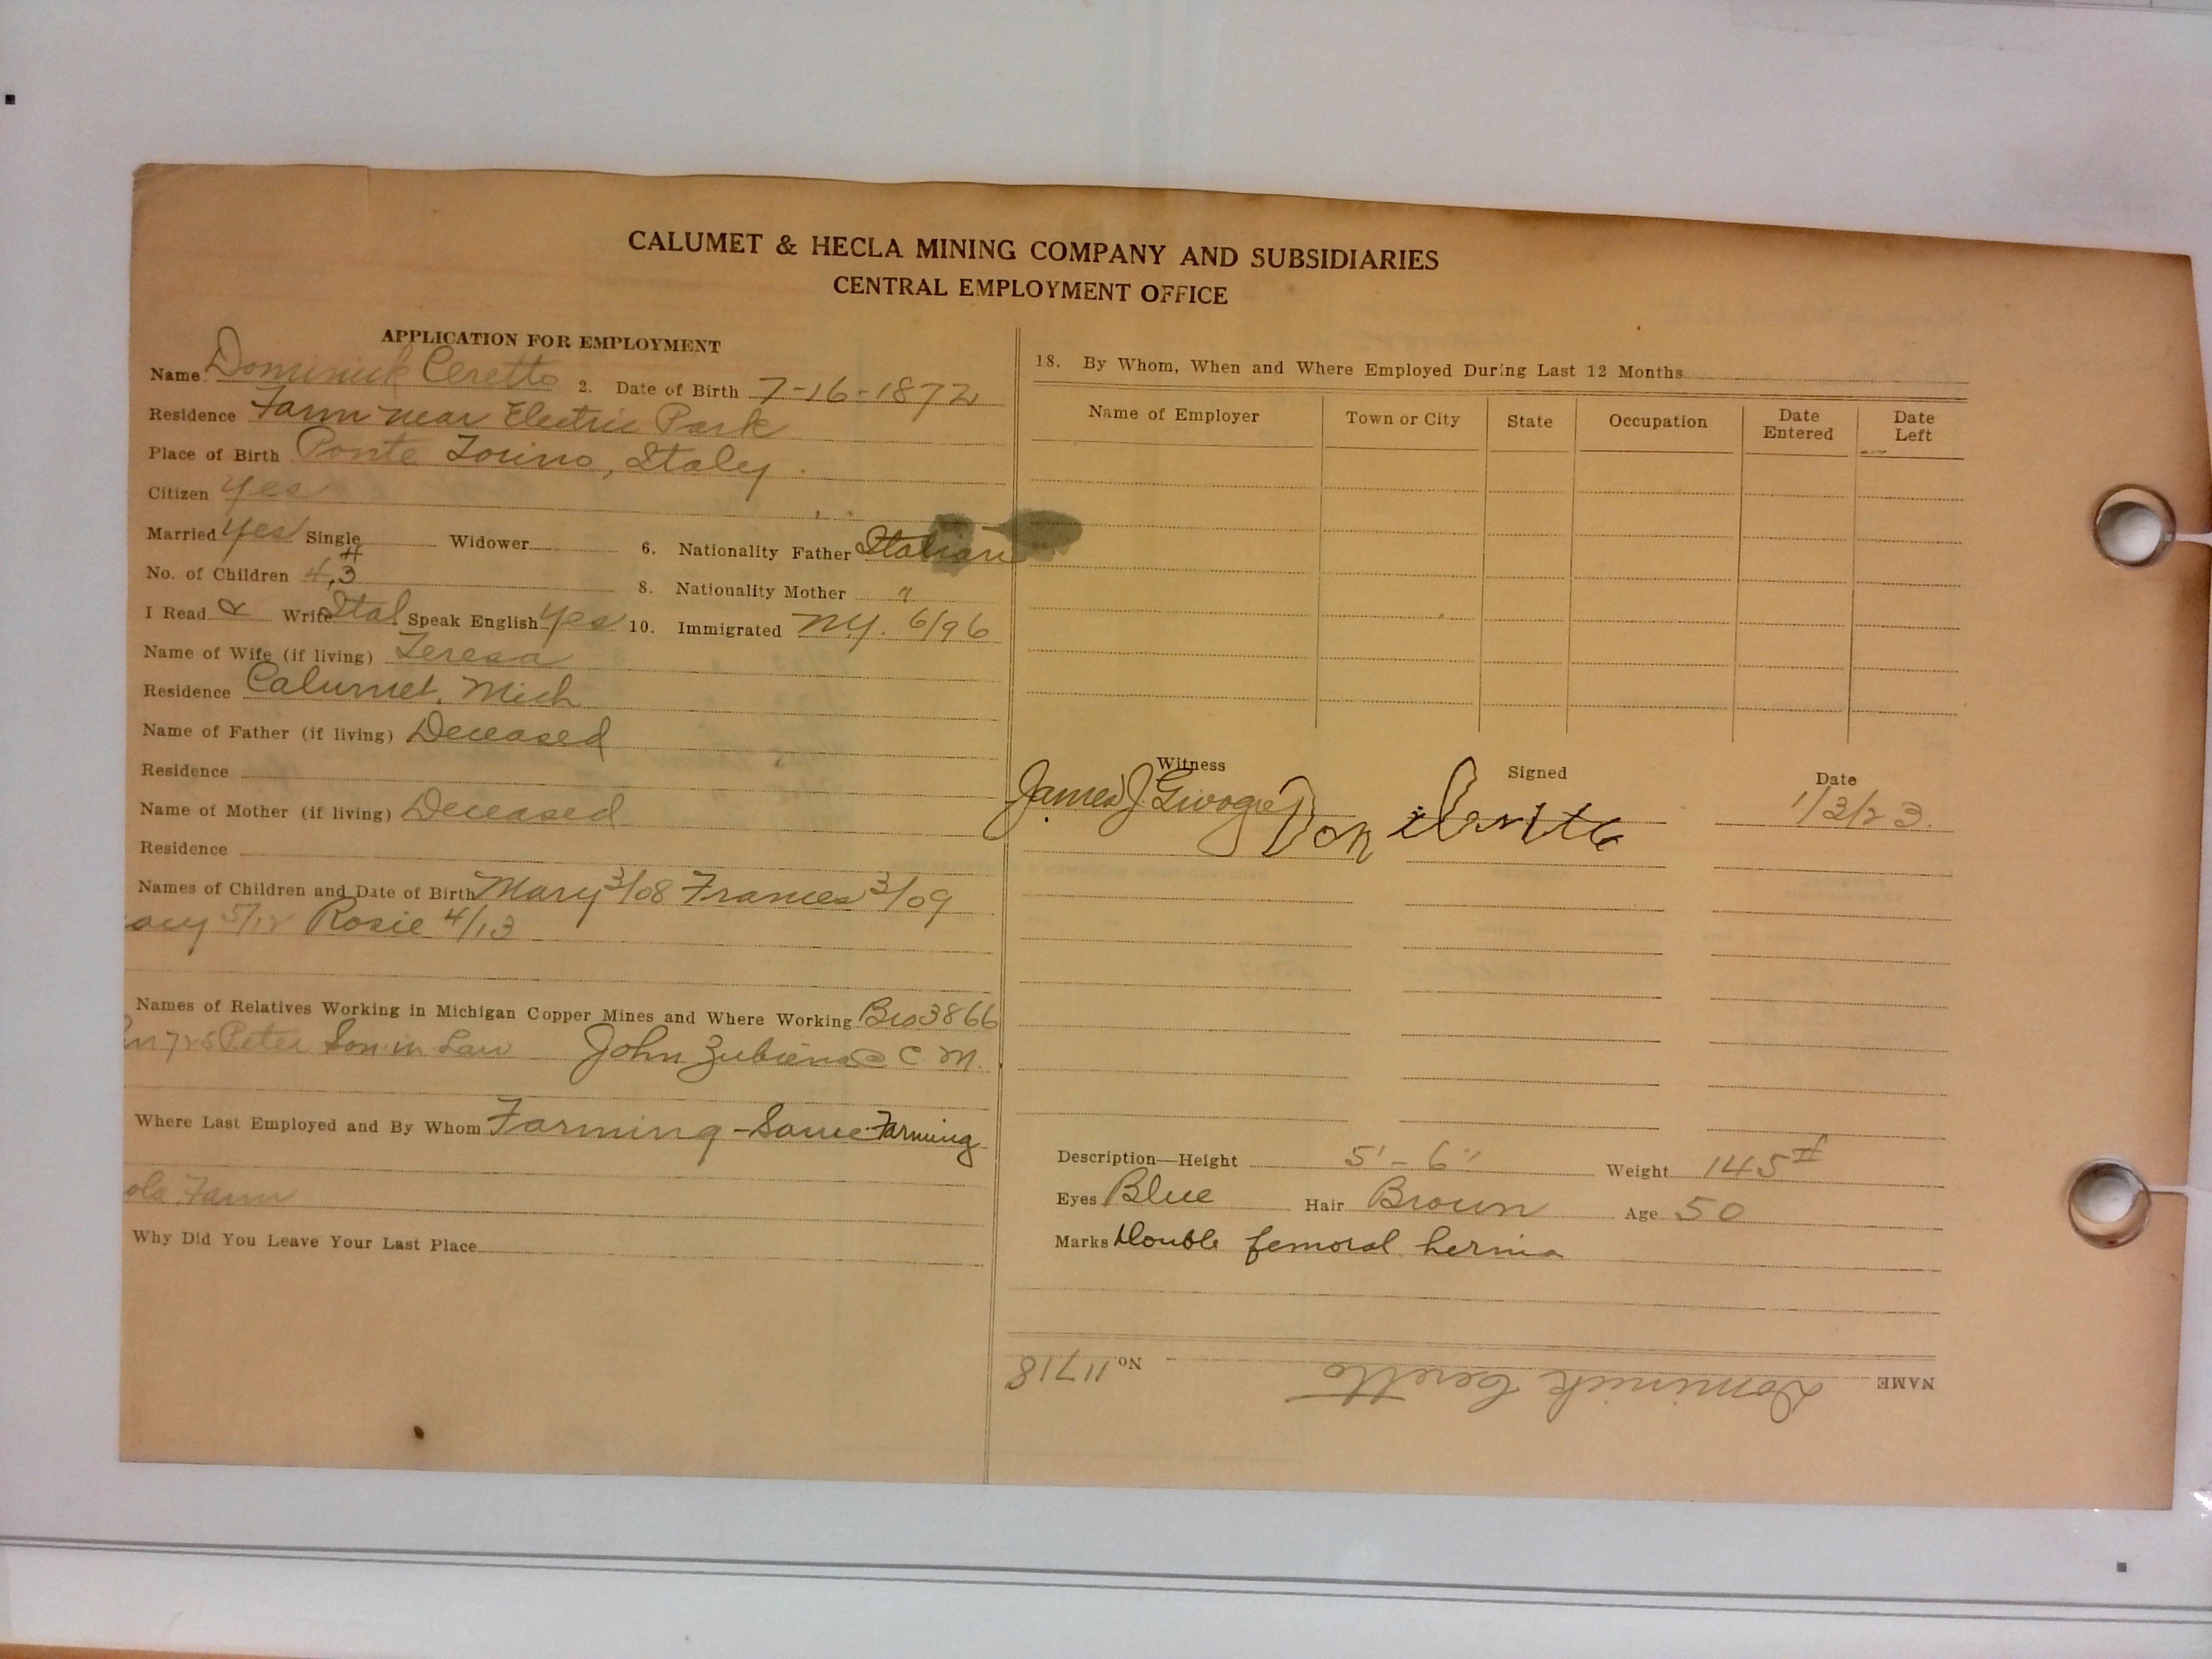 CALUMET & HECLA MINING COMPANY AND SUBSIDIARIES
CENTRAL EMPLOYMENT OFFICE
APPLICATION FOR EMPLOYMENT
Name Dominick Ceretto 2. Date of Birth 7-16-1872
Residence Farm near Electric Park
Place of Birth Ponte Torino, Italy
Citizen Yes
Married Yes Single Widower 6. Nationality Father Italian
No. of Children 4 3 4 8. Nationality Mother "
I Read & Write Ital Speak English Yes 10. Immigrated N.Y. 6/96
Name of Wife (if living) Teresa
Residence Calumet, Mich
Name of Father (if living) Deceased
Residence
Name of Mother (if living) Deceased
Residence
Names of Children and Date of Birth Mary 3/08 Frances 3/09
5/12 Rosie 4/13
Names of Relatives Working in Michigan Copper Mines and Where Working Bro 3866
725 Peter Son in Law John C M.
Where Last Employed and By Whom Farming - Same Farming
ola Farm
Why Did You Leave Your Last Place
18. By Whom, When and Where Employed During Last 12 Months
Name of Employer Town or City State Occupation Date Entered Date Left
Witness Signed Date
James J. Dom 1/3/23.
Description—Height 5'-6" Weight 145#
Eyes Blue Hair Brown Age 50
Marks Double femoral hernia
NAME Dominick Ceretto No 11718